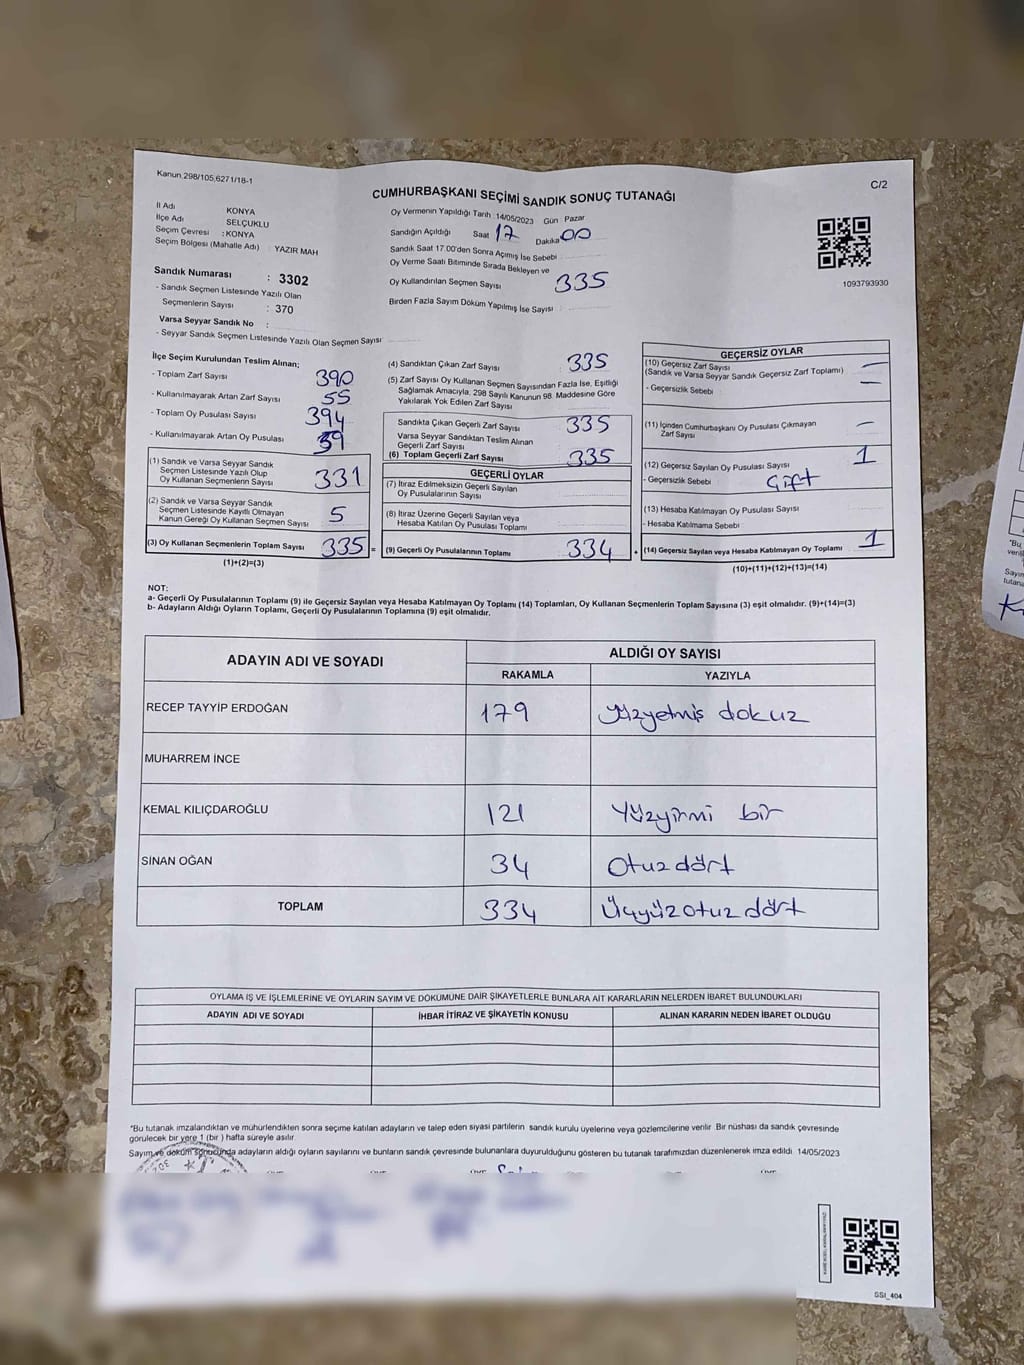 Kanun.298/105,6271/18-1
C/2
CUMHURBAŞKANI SEÇİMİ SANDIK SONUÇ TUTANAĞI
İl Adı KONYA
İlçe Adı SELÇUKLU
Seçim Çevresi : KONYA
Seçim Bölgesi (Mahalle Adı) : YAZIR MAH
Sandık Numarası : 3302
- Sandık Seçmen Listesinde Yazılı Olan
Seçmenlerin Sayısı : 370
Varsa Seyyar Sandık No :
- Seyyar Sandık Seçmen Listesinde Yazılı Olan Seçmen Sayısı
Oy Vermenin Yapıldığı Tarih :14/05/2023 Gün : Pazar
Sandığın Açıldığı Saat 17 Dakika 00
Sandık Saat 17.00'den Sonra Açımış İse Sebebi
Oy Verme Saati Bitiminde Sırada Bekleyen ve
Oy Kullandırılan Seçmen Sayısı 335
Birden Fazla Sayım Döküm Yapılmış İse Sayısı :
1093793930
İlçe Seçim Kurulundan Teslim Alınan;
- Toplam Zarf Sayısı 390
- Kullanılmayarak Artan Zarf Sayısı 55
- Toplam Oy Pusulası Sayısı 394
- Kullanılmayarak Artan Oy Pusulası 59
(1) Sandık ve Varsa Seyyar Sandık
Seçmen Listesinde Yazılı Olup
Oy Kullanan Seçmenlerin Sayısı 331
(2) Sandık ve Varsa Seyyar Sandık
Seçmen Listesinde Kayıtlı Olmayan
Kanun Gereği Oy Kullanan Seçmen Sayısı 5
(3) Oy Kullanan Seçmenlerin Toplam Sayısı 335 =
(1)+(2)=(3)
(4) Sandıktan Çıkan Zarf Sayısı 335
(5) Zarf Sayısı Oy Kullanan Seçmen Sayısından Fazla İse, Eşitliği
Sağlamak Amacıyla, 298 Sayılı Kanunun 98. Maddesine Göre
Yakılarak Yok Edilen Zarf Sayısı
Sandıkta Çıkan Geçerli Zarf Sayısı 335
Varsa Seyyar Sandıktan Teslim Alınan
Geçerli Zarf Sayısı
(6) Toplam Geçerli Zarf Sayısı 335
GEÇERLİ OYLAR
(7) İtiraz Edilmeksizin Geçerli Sayılan
Oy Pusulalarının Sayısı
(8) İtiraz Üzerine Geçerli Sayılan veya
Hesaba Katılan Oy Pusulası Toplamı
(9) Geçerli Oy Pusulalarının Toplamı 334 +
GEÇERSİZ OYLAR
(10) Geçersiz Zarf Sayısı –
(Sandık ve Varsa Seyyar Sandık Geçersiz Zarf Toplamı)
- Geçersizlik Sebebi : –
(11) İçinden Cumhurbaşkanı Oy Pusulası Çıkmayan
Zarf Sayısı –
(12) Geçersiz Sayılan Oy Pusulası Sayısı 1
- Geçersizlik Sebebi Çift
(13) Hesaba Katılmayan Oy Pusulası Sayısı
- Hesaba Katılmama Sebebi :
(14) Geçersiz Sayılan veya Hesaba Katılmayan Oy Toplamı 1
(10)+(11)+(12)+(13)=(14)
NOT:
a- Geçerli Oy Pusulalarının Toplamı (9) ile Geçersiz Sayılan veya Hesaba Katılmayan Oy Toplamı (14) Toplamları, Oy Kullanan Seçmenlerin Toplam Sayısına (3) eşit olmalıdır. (9)+(14)=(3)
b- Adayların Aldığı Oyların Toplamı, Geçerli Oy Pusulalarının Toplamına (9) eşit olmalıdır.
ADAYIN ADI VE SOYADI ALDIĞI OY SAYISI
RAKAMLA YAZIYLA
RECEP TAYYİP ERDOĞAN 179 yüzyetmiş dokuz
MUHARREM İNCE
KEMAL KILIÇDAROĞLU 121 Yüzyirmi bir
SİNAN OĞAN 34 Otuz dört
TOPLAM 334 Üçyüz otuz dört
OYLAMA İŞ VE İŞLEMLERİNE VE OYLARIN SAYIM VE DÖKÜMÜNE DAİR ŞİKAYETLERLE BUNLARA AİT KARARLARIN NELERDEN İBARET BULUNDUKLARI
ADAYIN ADI VE SOYADI İHBAR İTİRAZ VE ŞİKAYETİN KONUSU ALINAN KARARIN NEDEN İBARET OLDUĞU
*Bu tutanak imzalandıktan ve mühürlendikten sonra seçime katılan adayların ve talep eden siyasi partilerin sandık kurulu üyelerine veya gözlemcilerine verilir. Bir nüshası da sandık çevresinde
görülecek bir yere 1 (bir ) hafta süreyle asılır.
Sayım ve döküm sonucunda adayların aldığı oyların sayılarını ve bunların sandık çevresinde bulunanlara duyurulduğunu gösteren bu tutanak tarafımızdan düzenlenerek imza edildi. 14/05/2023
SSI_404